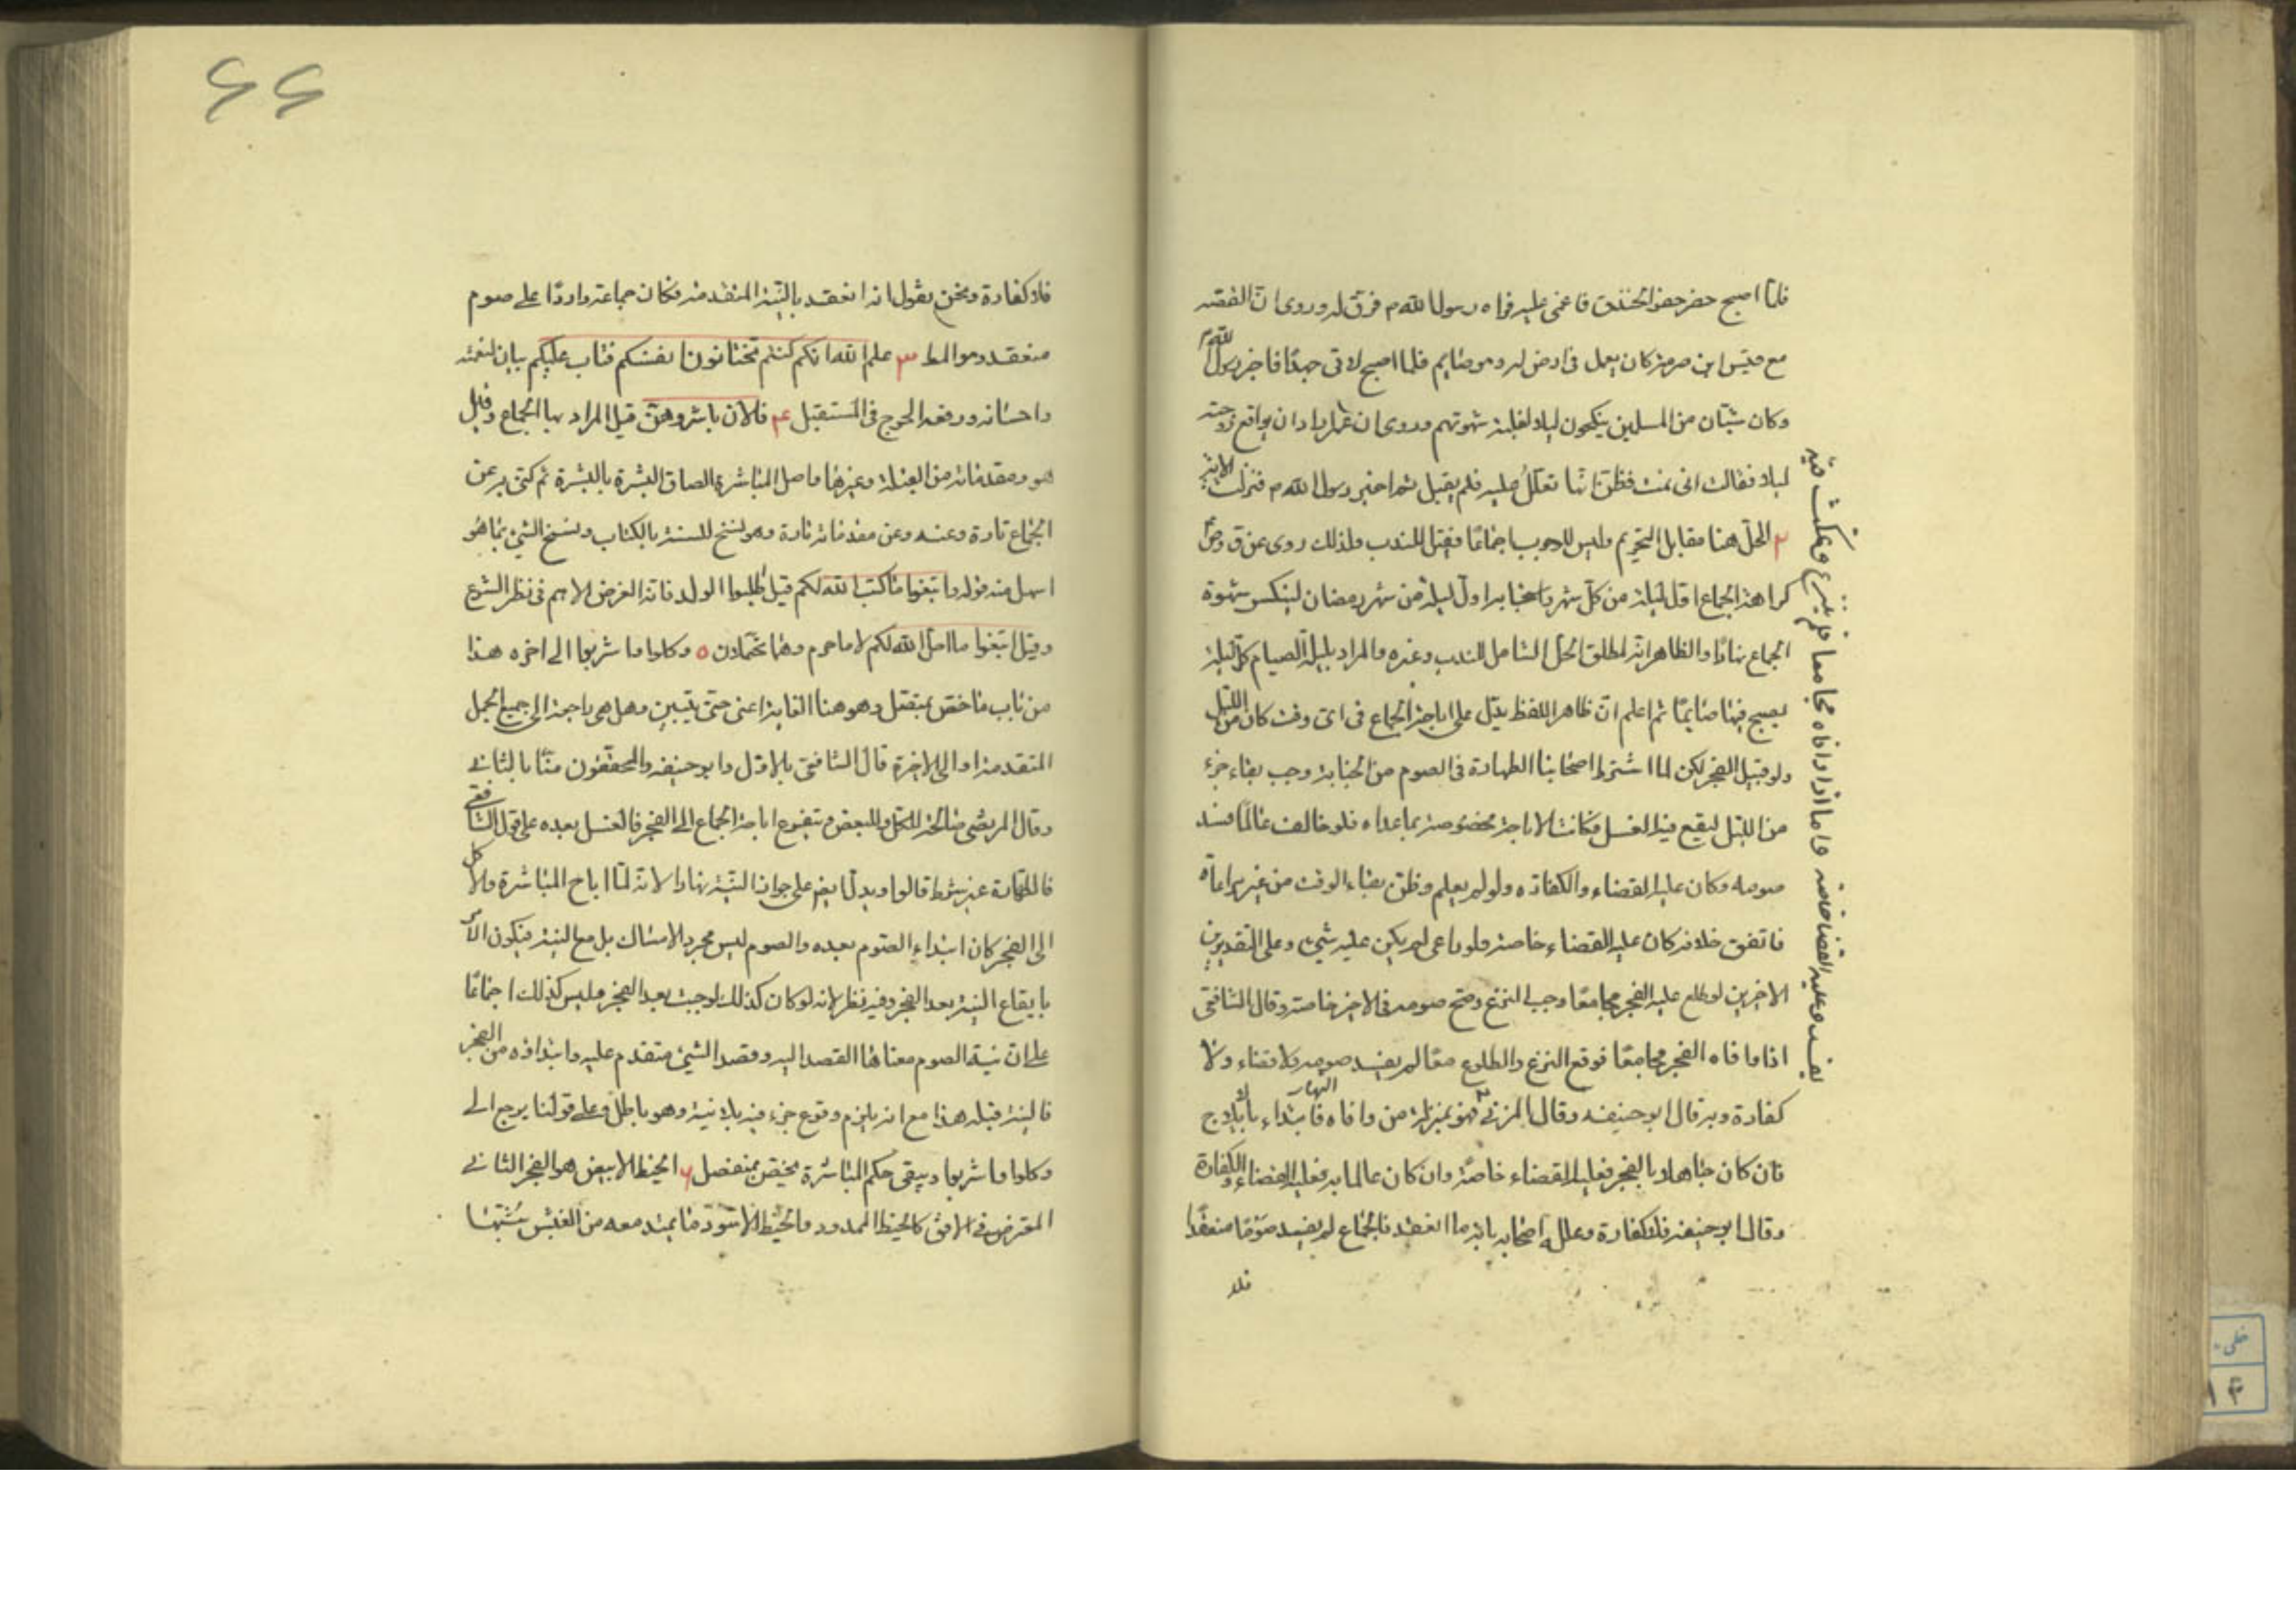 فلما اصبح حضر حفر الخندق فاغمى عليه فراه رسول الله ص فرق له وروى ان القصه
مع قيس ابن صرمة كان يعمل فى ارض له وهو صايم فلما اصبح لاقى جهدًا فاخبر رسول الله ص
وكان شبّان من المسلمين ينكحون ليلا لغلبة شهوتهم وروى ان عمر اراد ان يواقع زوجته
ليلا فقالت انى نمت فظن انها تعلل عليه فلم يقبل ثم اخبر رسول الله ص فنزلت الاية
٢ الحل هنا مقابل التحريم وليس للوجوب اجماعًا فقيل للندب ولذلك روى عن ق وص
كراهة الجماع اوّل ليلة من كل شهر واستحبابه اول ليلة من شهر رمضان لينكسر شهوة
الجماع نهارًا والظاهر انه لمطلق الحل الشامل للندب وغيره والمراد بليلة الصيام كل ليلة
يصبح فيها صايمًا ثم اعلم ان ظاهر اللفظ يدل على اباحة الجماع فى اى وقت كان من الليل
ولو قبيل الفجر لكن لما اشترط اصحابنا الطهارة فى الصوم من الجنابة وجب بقاء جزء
من الليل ليقع فيه الغسل فكانت الاباحة مخصوصة بما عداه فلو خالف عالمًا فسد
صومه وكان عليه القضاء والكفاره ولو لم يعلم وظن بقاء الوقت من غير مراعاة
فاتفق خلافه كان عليه القضاء خاصة ولو راعى لم يكن عليه شىء وعلى التقديرين
الاخيرين لو طلع عليه الفجر مجامعًا وجب النزع وصح صومه فى الاخير خاصة وقال الشافعى
اذا وافاه الفجر مجامعًا فوقع النزع والطلوع معًا لم يفسد صومه ولا قضاء ولا
كفارة وبه قال ابو حنيفه وقال المزنى هو بمنزلة من وافاه النهار فابتداء بالايلاج
فان كان جاهلا بالفجر فعليه القضاء خاصة وان كان عالما به فعليه القضاء والكفارة
وقال ابو حنيفة فلا كفارة وعلل اصحابه بانه ما انعقد فالجماع لم يفسد صومًا منعقدًا
فلا
يفسد وعليه القضا خاصة واما اذا وافاه مجامعا فلم ينزع ومكث فيه
٦٦
فلا كفارة ونحن نقول انه انعقد بالنية المتقدمة فكان جماعه واردًا على صوم
منعقد وهو المط ٣ علم الله انكم كنتم تختانون انفسكم فتاب عليكم بيان لنعمته
واحسانه ورفعه الحرج فى المستقبل ٤ فالان باشروهن قيل المراد بها الجماع وقيل
هو ومقدماته من القبلة وغيرها واصل المباشرة الصاق البشرة بالبشرة ثم كنى به عن
الجماع تارة وعنه وعن مقدماته تارة وهو نسخ للسنة بالكتاب ونسخ الشئ بما هو
اسهل منه قوله وابتغوا ما كتب الله لكم قيل اطلبوا الولد فانه الغرض الاهم فى نظر الشرع
وقيل ابتغوا ما احل الله لكم لا ما حرم وهما محتملان ٥ وكلوا واشربوا الى اخره هذا
من باب ما خص بمتصل وهو هنا الغاية اعنى حتى يتبين وهل هى راجعة الى جميع الجمل
المتقدمة او الى الاخيرة قال الشافعى بالاول وابو حنيفه والمحققون منا بالثانى
وقال المرتضى صالحة للكل والبعض ويتفرع اباحة الجماع الى الفجر فالغسل بعده على قول الشافعى
فالطهارة غير شرط قالوا ويدل ايضا على جواز النية نهارا لانه لما اباح المباشرة والاكل
الى الفجر كان ابتداء الصوم بعده والصوم ليس مجرد الامساك بل مع النية فيكون الامر
بايقاع النية بعد الفجر وفيه نظر لانه لو كان كذلك لوجبت بعد الفجر وليس كذلك اجماعًا
على ان نية الصوم معناها القصد اليه وقصد الشئ متقدم عليه وابتداؤه من الفجر
فالنية قبله هذا مع انه يلزم وقوع جزء منه بلا نية وهو باطل وعلى قولنا يرجع الى
وكلوا واشربوا ويبقى حكم المباشرة يختص بمنفصل ٦ الخيط الابيض هو الفجر الثانى
المعترض فى الافق كالخيط الممدود والخيط الاسود ما يمتد معه من الغبش تشبيها
خطى